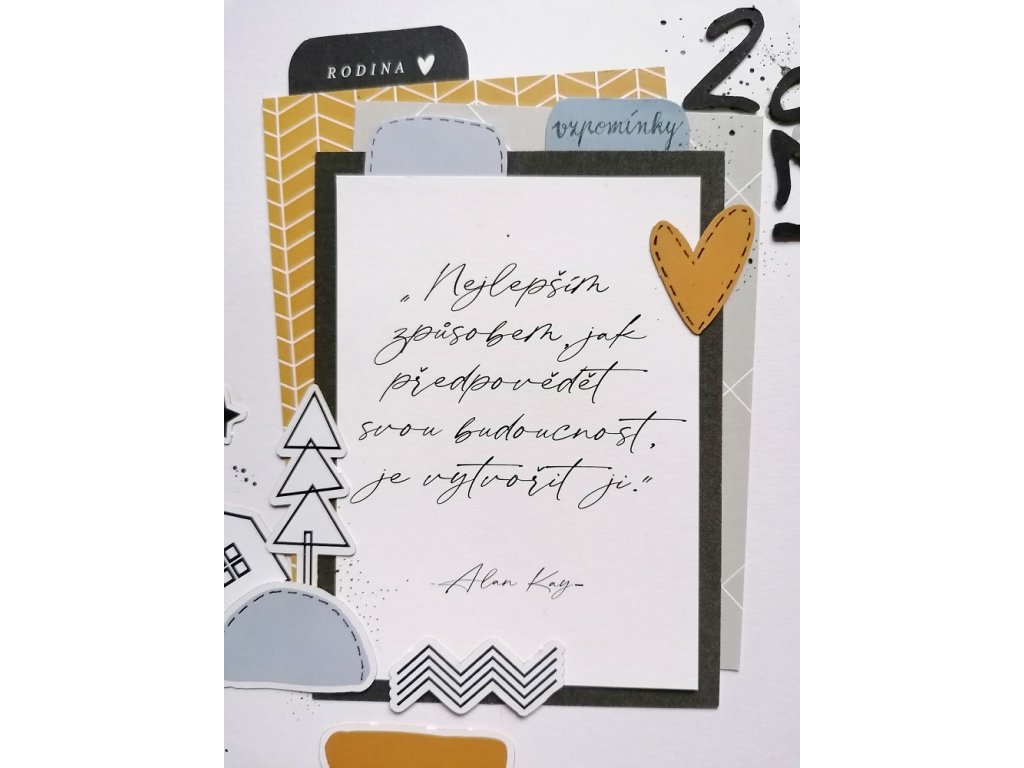 RODINA
vzpomínky
„Nejlepším
způsobem, jak
předpovědět
svou budoucnost,
je vytvořit ji.“
-Alan Kay-